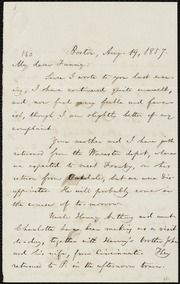 Boston, Aug. 19, 1857.
My dear Fanny:
Since I wrote to you last even-
ing, I have continued quite unwell,
and now feel very feeble and fever-
ish, though I am slightly better of my
complaint.
Your mother and I have just
returned from the Worcester depot, where
we expected to meet Franky, on his
return from, but we were dis-
appointed. He will probably come on
the course of to-morrow.
Uncle Henry Anthony and aunt
Charlotte have been making us a visit
to-day, together with Henry's brother John
and his wife, from Cincinnati. They
returned to P. in the afternoon train.